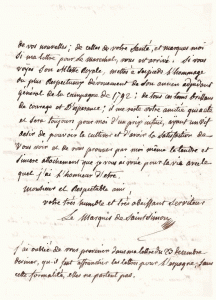 de vos nouvelles; de celles de votre Santé, et marqués moi
Si ma lettre pour le marechal, vous est arrivée. Si vous
voyés Son Altesse Royale, mettés a Ses pieds l'hommage
du plus Respectueux dévouement de Son ancien adjudant
général de la campagne de 1792: de tous
de courage et D'esperance; il me reste votre amitié
et Sera toujours pour moi d'un prix infini, ayant
desir de pouvoir la cultiver et d'avoir la Satisfaction de
Vous voir et de vous prouver par moi même le tendre et
Sincere attachement que je vous ai voué pour la vie avec le
quel j'ai l'honneur d'être.
Monsieur et Respectable ami
votre très humble et très obéissant Serviteur
Le Marquis de Saint Simon
j'ai oublié de vous prevenir dans ma lettre du 23 decembre
dernier, qu'il faut affranchir les lettres pour l'espagne, Sans
cette formalité, elles ne partent pas.